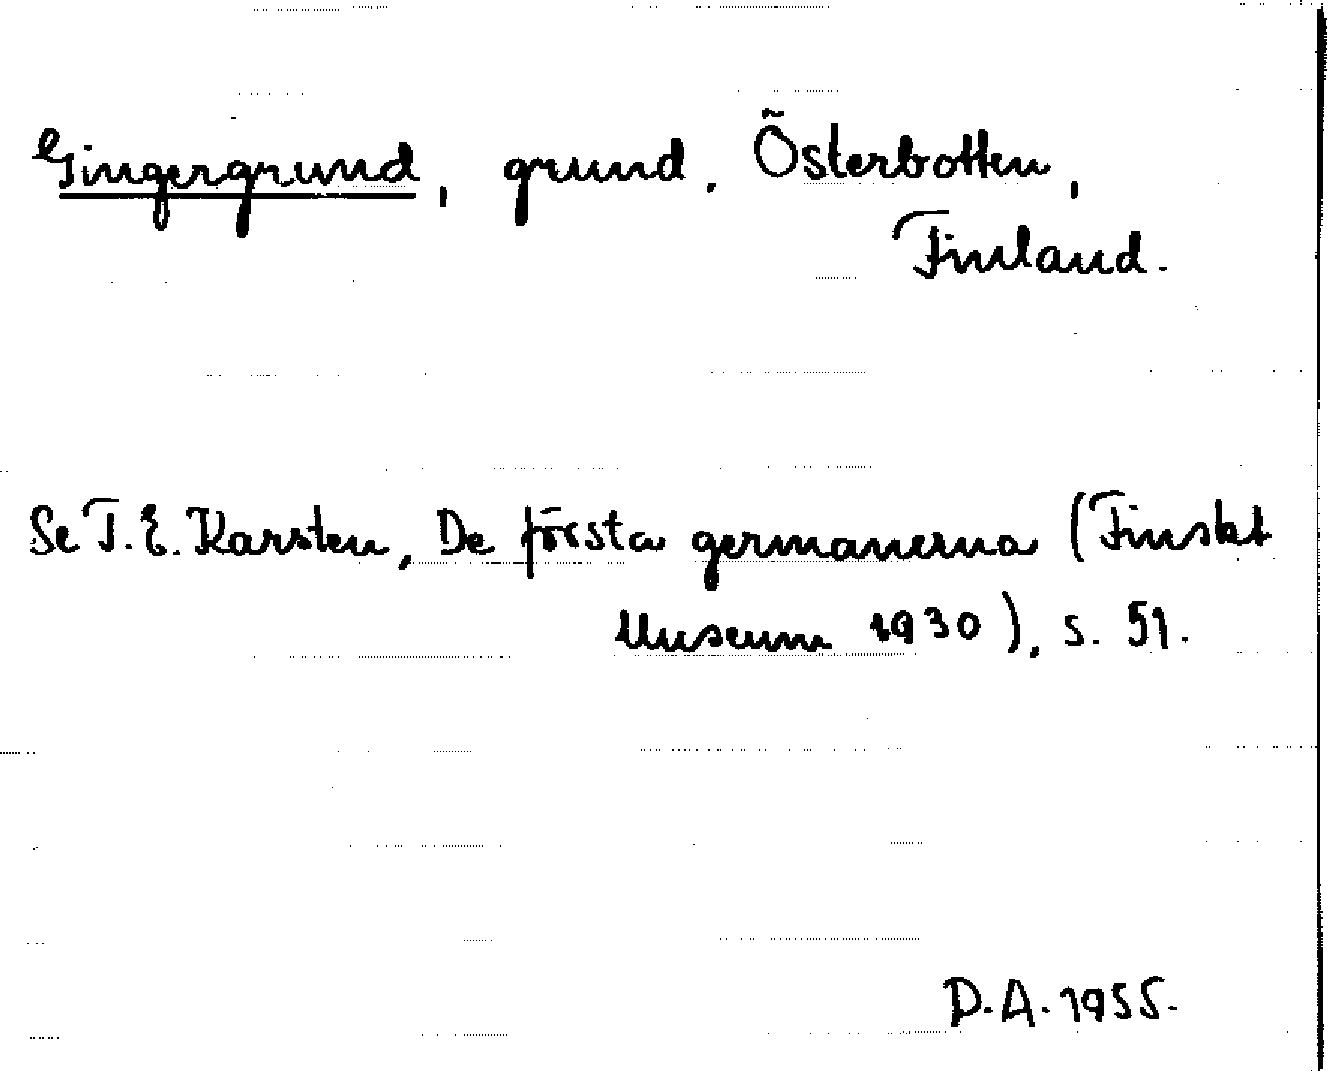 Gingergrund, grund, Österbotten,
Finland.
Se T.E. Karsten, De första germanerna (Finskt
Museum 1930), s. 51.
D.A. 1955.